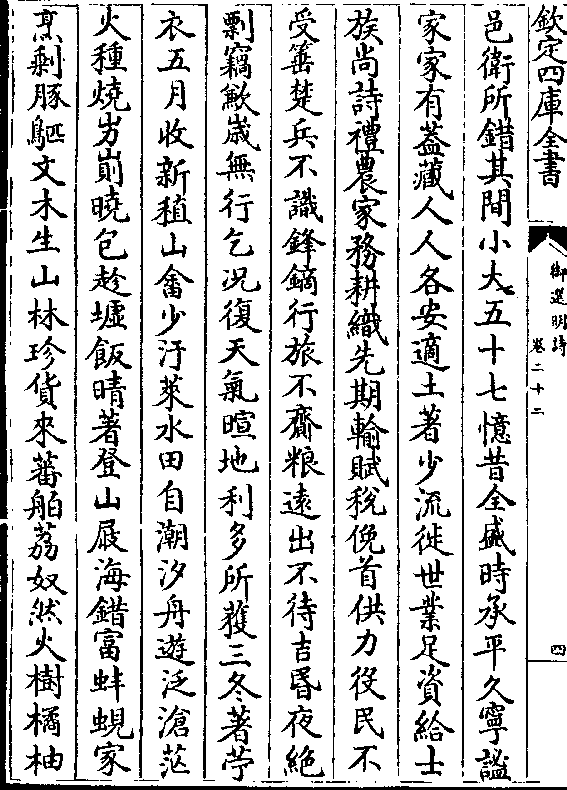 欽定四庫全書
御選明詩
卷二十二
四
邑衛所錯其間小大五十七憶昔全盛時承平久寧謐
家家有葢藏人人各安適土著少流徙世業足資給士
族尚詩禮農家務耕織先期輸賦稅俛首供力役民不
受箠楚兵不識鋒鏑行旅不齎粮遠出不待吉昬夜絶
剽竊歉嵗無行乞况復天氣暄地利多所獲三冬著苧
衣五月收新稙山畬少汙萊水田自潮汐舟遊泛滄茫
火種燒屴崱曉包趁墟飯晴著登山屐海錯富蚌蜆家
烹剩豚䮫文木生山林珍貨來蕃舶荔奴然火樹橘柚